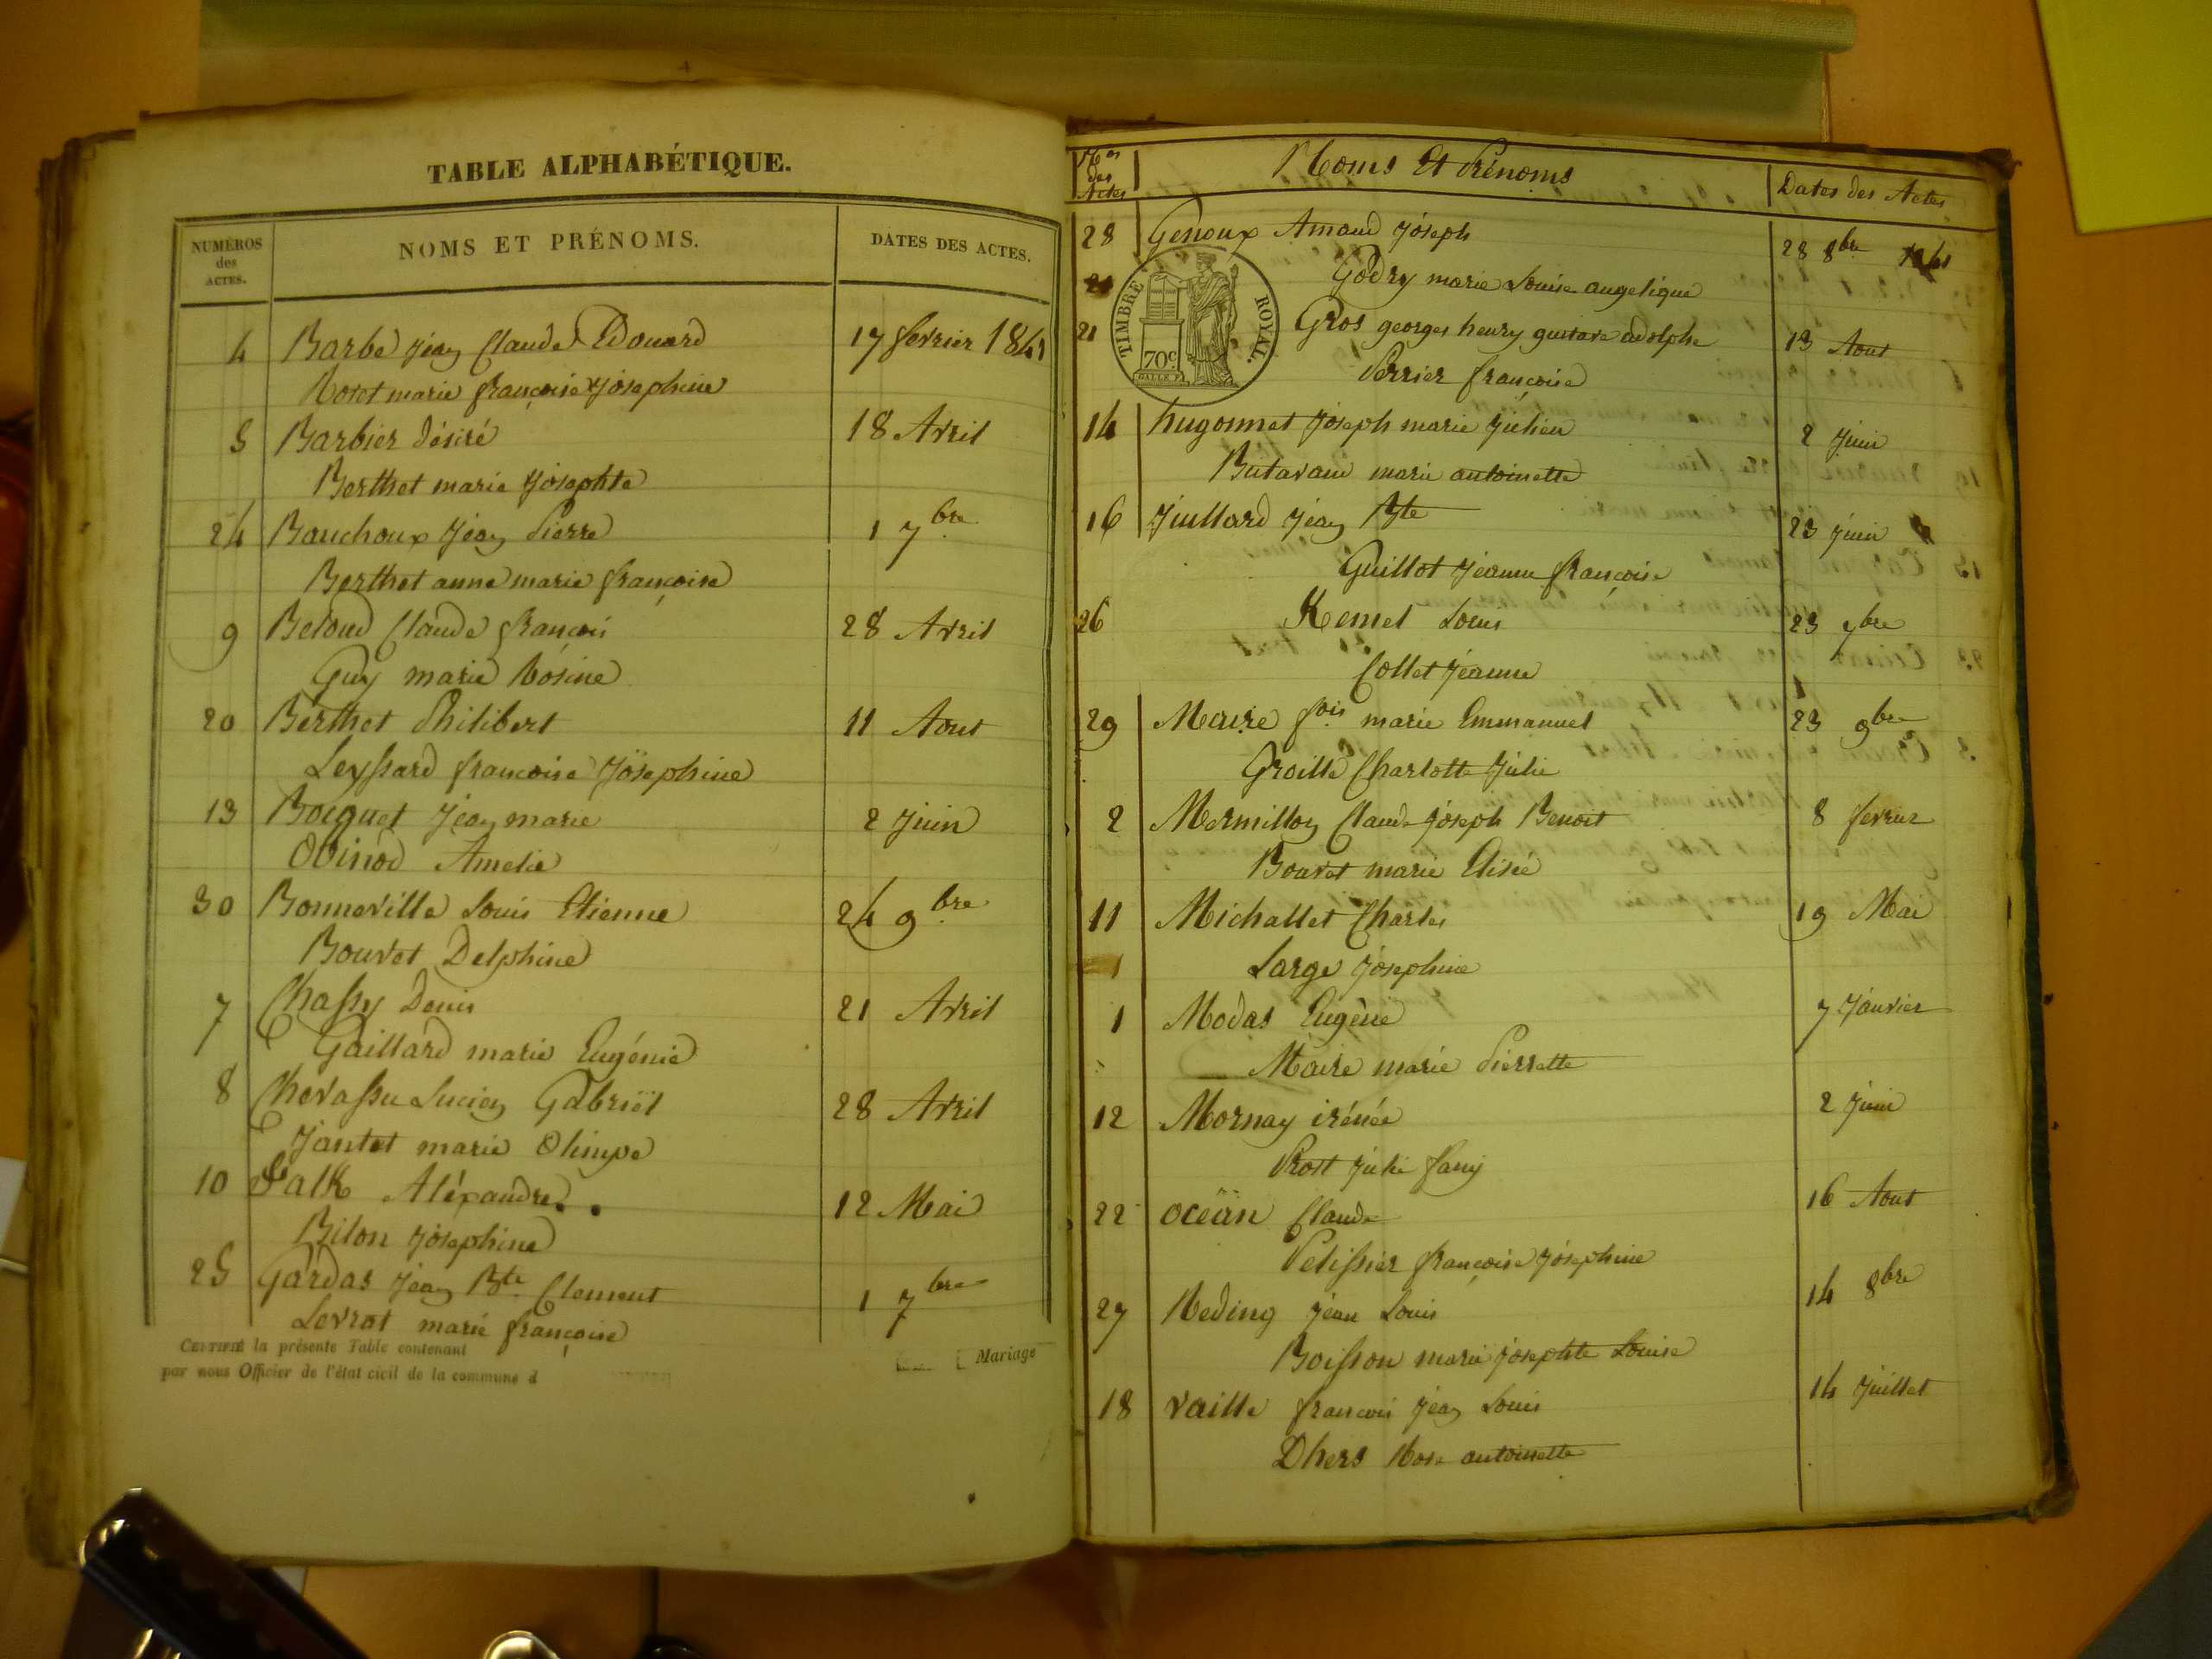 TABLE ALPHABÉTIQUE.
NUMÉROS des ACTES.
NOMS ET PRÉNOMS.
DATES DES ACTES.
4 Barbe Jean Claude Edouard 17 fevrier 1841
Rotot marie françoise Josephine
5 Barbier désiré 18 Avril
Berthet marie Josephte
24 Bauchoux Jean Pierre 1 7bre
Berthet anne marie françoise
9 Beloud Claude françois 28 Avril
Guy marie Rosine
20 Berthet Philibert 11 Aout
Leyssard francoise Josephine
13 Bocquet Jean marie 2 Juin
Obinod Amelie
30 Bonneville Louis Etienne 24 9bre
Bouvet Delphine
7 Chassy Denis 21 Avril
Gaillard marie Eugénie
8 Chevassu Lucien Gabriel 28 Avril
Jantet marie Olimpe
10 Falk Aléxandre 12 Mai
Bilon Josephine
25 Gardas Jean Bte Clement 1 7bre
Levrat marie françoise
CERTIFIÉ la présente Table contenant Mariage
par nous Officier de l'état civil de la commune d
Nos des Actes
Noms Et Prénoms
Dates des Actes
28 Genoux Amand Joseph 28 8bre 1841
Godry marie Louise angelique
21 Gros georges henry gustave adolphe 13 Aout
Perrier françoise
TIMBRE ROYAL.
70c.
14 hugonnet Joseph marie Julien 2 Juin
Butavand marie antoinette
16 Juillard Jean Bte 23 Juin
Guillot Jeanne françoise
26 Kemel Louis 23 7bre
Collet Jeanne
29 Maire fois marie Emmanuel 23 9bre
Groille Charlotte Julie
2 Mermillon Claude Joseph Benoit 8 fevrier
Bouvet marie Elisée
11 Michallet Charles 19 Mai
Large Josephine
1 Modas Eugène 7 Janvier
Maire marie Pierrette
12 Mornay irénée 2 Juin
Prost Julie fany
22 océan Claude 16 Aout
Pelissier françoise Josephine
27 Reding Jean Louis 14 8bre
Boisson marie Josephte Louise
18 vaille francois Jean Louis 14 Juillet
Dhers Rose antoinette